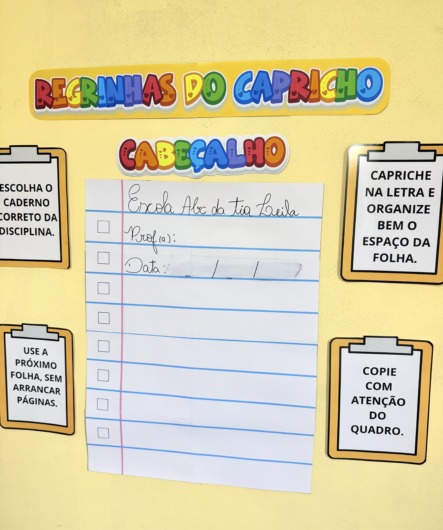 REGRINHAS DO CAPRICHO
CABEÇALHO
ESCOLHA O
CADERNO
CORRETO DA
DISCIPLINA.
Escola Abc da tia Leila
Prof.(a):
Data: __/__/__
CAPRICHE
NA LETRA E
ORGANIZE
BEM O
ESPAÇO DA
FOLHA.
USE A
PRÓXIMO
FOLHA, SEM
ARRANCAR
PÁGINAS.
COPIE
COM
ATENÇÃO
DO
QUADRO.